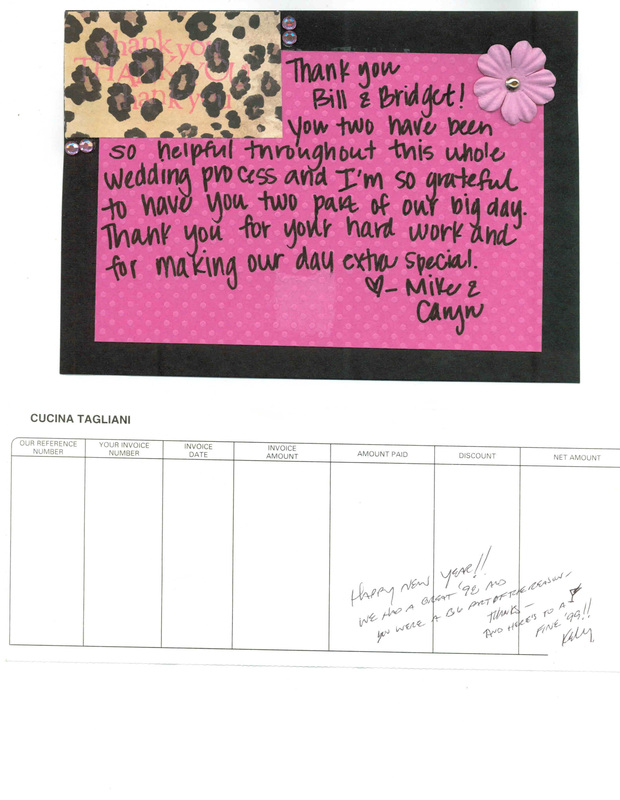 thank you
THANK YOU
thank you
Thank you
Bill & Bridget!
You two have been
so helpful throughout this whole
wedding process and I'm so grateful
to have you two part of our big day.
Thank you for your hard work and
for making our day extra special.
♡- Mike &
Caryn
CUCINA TAGLIANI
OUR REFERENCE NUMBER
YOUR INVOICE NUMBER
INVOICE DATE
INVOICE AMOUNT
AMOUNT PAID
DISCOUNT
NET AMOUNT
HAPPY NEW YEAR!!
WE HAD A GREAT '98 AND
YOU WERE A BIG PART OF THE REASON-
THANKS-
AND HERE'S TO A
FINE '99!!
Kelly